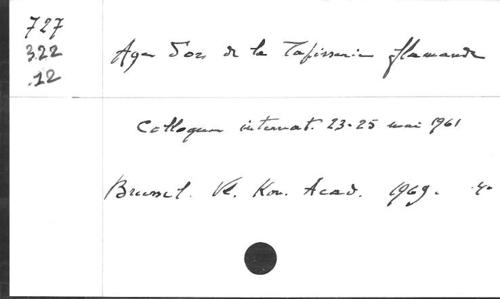 727
322
.12
Age d'or de la Tapisserie flamande
Colloque internat. 23-25 mai 1961
Brussel. Vl. Kon. Acad. 1969. 4°